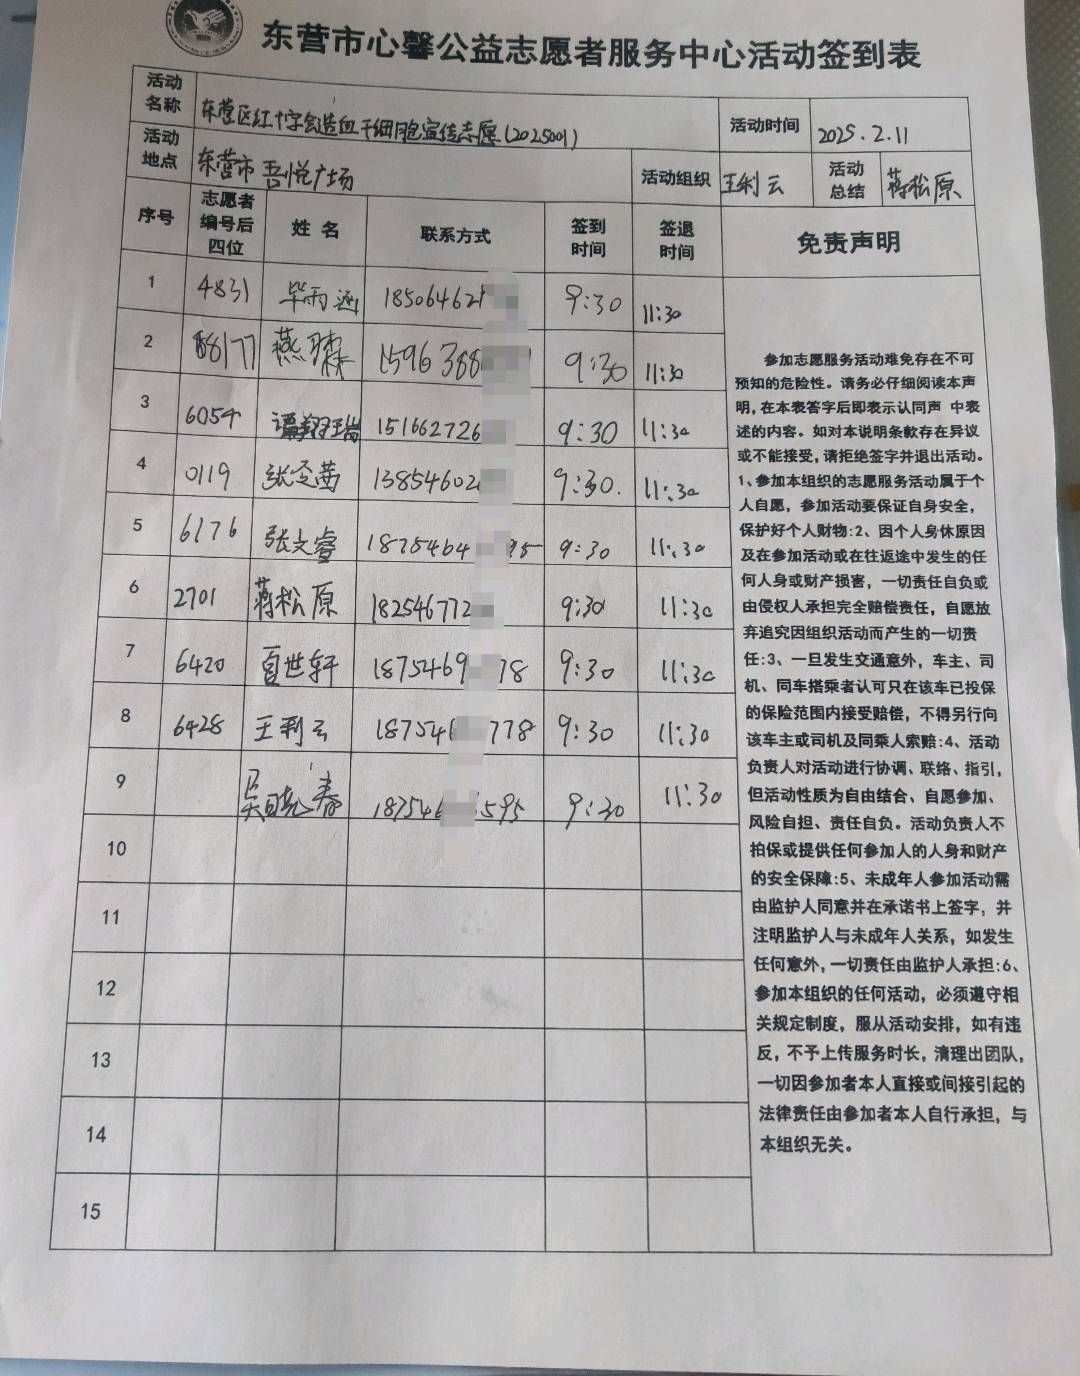 东营市心馨公益志愿者服务中心活动签到表
活动名称 东营区红十字会造血干细胞宣传志愿(2025001) 活动时间 2025.2.11
活动地点 东营市吾悦广场 活动组织 王利云 活动总结 蒋松原
序号 志愿者编号后四位 姓名 联系方式 签到时间 签退时间 免责声明
1 4831 毕雨涵 185064621 9:30 11:30
2 8177 燕 1596388 9:30 11:30
3 6054 谭翔瑞 151662726 9:30 11:30
4 0119 张 茜 13854602 9:30. 11:30
5 6176 张文睿 1875464 95 9:30 11:30
6 2701 蒋松原 182546772 9:30 11:30
7 6420 夏世轩 1875469 78 9:30 11:30
8 6428 王利云 187546 778 9:30 11:30
9 吴晓春 187546 595 9:30 11:30
10
11
12
13
14
15
参加志愿服务活动难免存在不可
预知的危险性。请务必仔细阅读本声
明,在本表答字后即表示认同声 中表
述的内容。如对本说明条款存在异议
或不能接受,请拒绝签字并退出活动。
1、参加本组织的志愿服务活动属于个
人自愿，参加活动要保证自身安全,
保护好个人财物:2、因个人身休原因
及在参加活动或在往返途中发生的任
何人身或财产损害，一切责任自负或
由侵权人承担完全赔偿责任，自愿放
弃追究因组织活动而产生的一切责
任:3、一旦发生交通意外，车主、司
机、同车搭乘者认可只在该车已投保
的保险范围内接受赔偿，不得另行向
该车主或司机及同乘人索赔:4、活动
负责人对活动进行协调、联络、指引,
但活动性质为自由结合、自愿参加、
风险自担、责任自负。活动负责人不
拍保或提供任何参加人的人身和财产
的安全保障:5、未成年人参加活动需
由监护人同意并在承诺书上签字，并
注明监护人与未成年人关系，如发生
任何意外,一切责任由监护人承担:6、
参加本组织的任何活动，必须遵守相
关规定制度，服从活动安排，如有违
反，不予上传服务时长，清理出团队,
一切因参加者本人直接或间接引起的
法律责任由参加者本人自行承担，与
本组织无关。